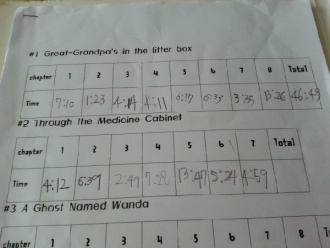 #1 Great-Grandpa's in the litter box
chapter 1 2 3 4 5 6 7 8 Total
Time 7:10 1:23 4:14 4:11 6:33 3:35 13:26 46:49
#2 Through the Medicine Cabinet
chapter 1 2 3 4 5 6 7 Total
Time 4:12 6:39 2:49 7:28 13:47 5:24 4:59
#3 A Ghost Named Wanda
chapter 1 2 3 4 5 6 7 8 Total